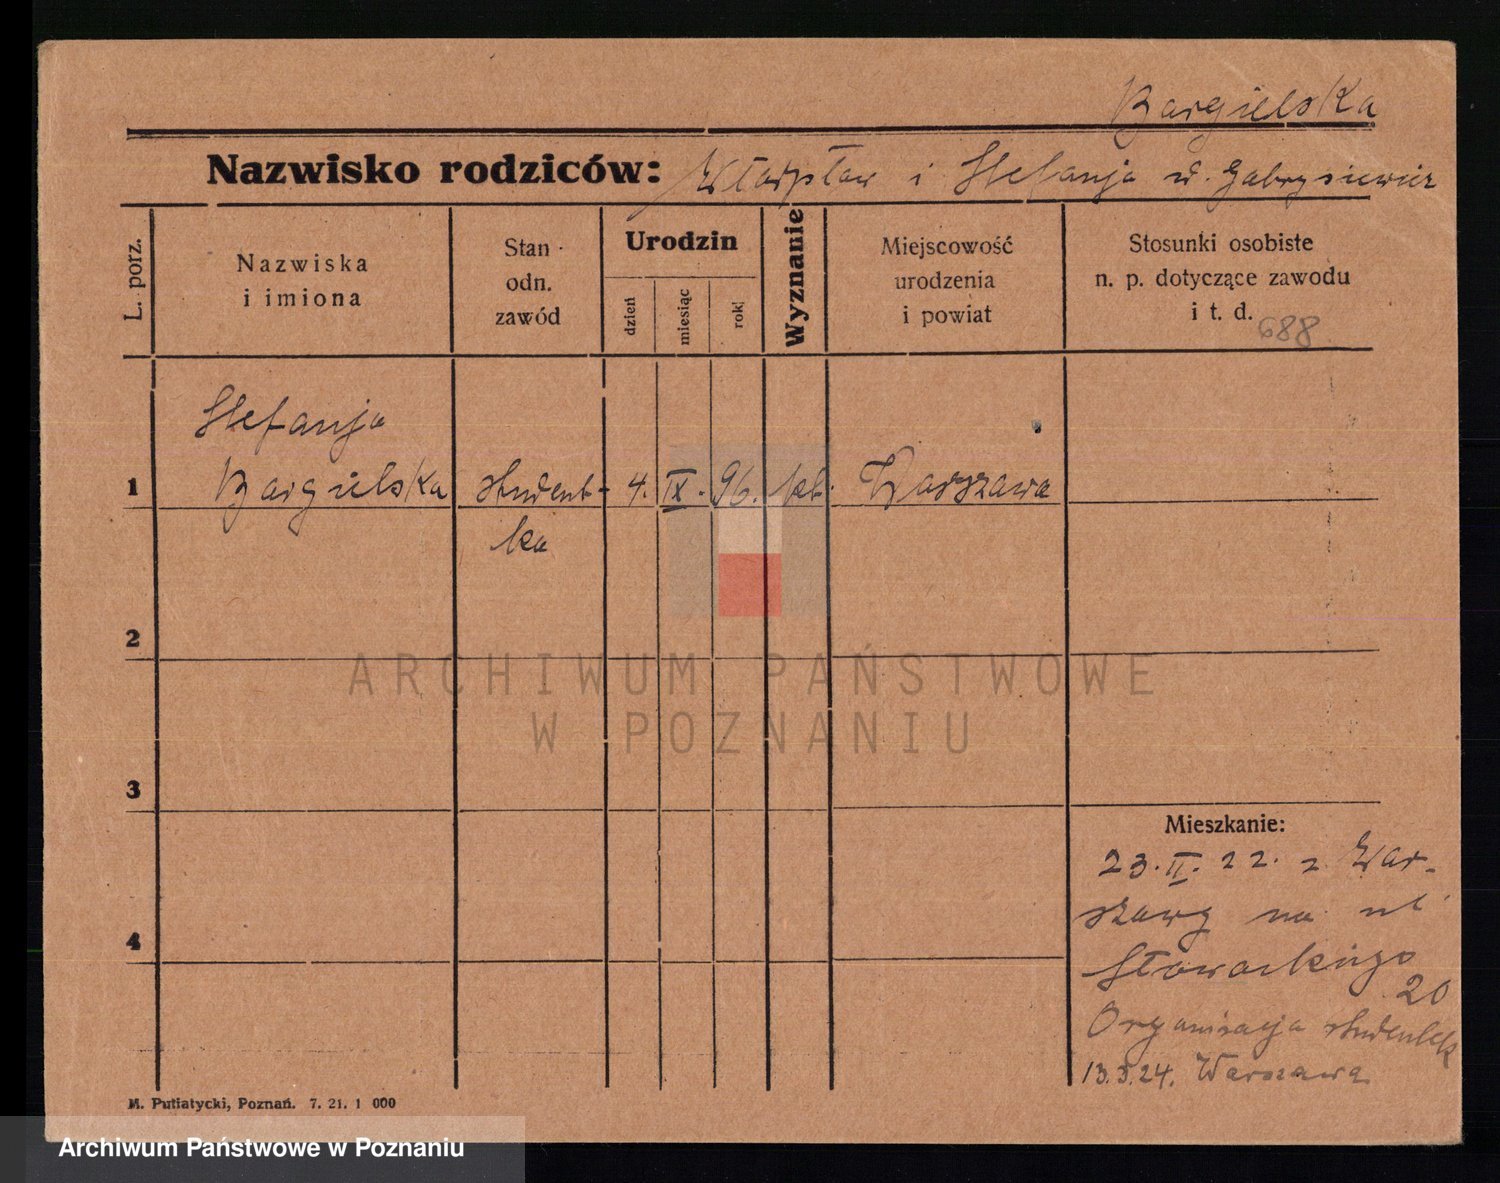 Bargielska
Nazwisko rodziców: i Stefanja u. Gabrysiewicz
L. porz.
Nazwiska
i imiona
Stan
odn.
zawód
Urodzin
dzień
miesiąc
rok
Wyznanie
Miejscowość
urodzenia
i powiat
Stosunki osobiste
n. p. dotyczące zawodu
i t. d.
688
Stefanja
1 Bargielska student- 4. IX. 96. kt. Warszawa
ka
2
3
4
Mieszkanie:
23. II. 22. z War-
szawy na ul
Słowackiego
20
Organisacja studentek
13.3.24. Warszawa
M. Putiatycki, Poznań. 7. 21. 1 000
ARCHIWUM PAŃSTWOWE
W POZNANIU
Archiwum Państwowe w Poznaniu